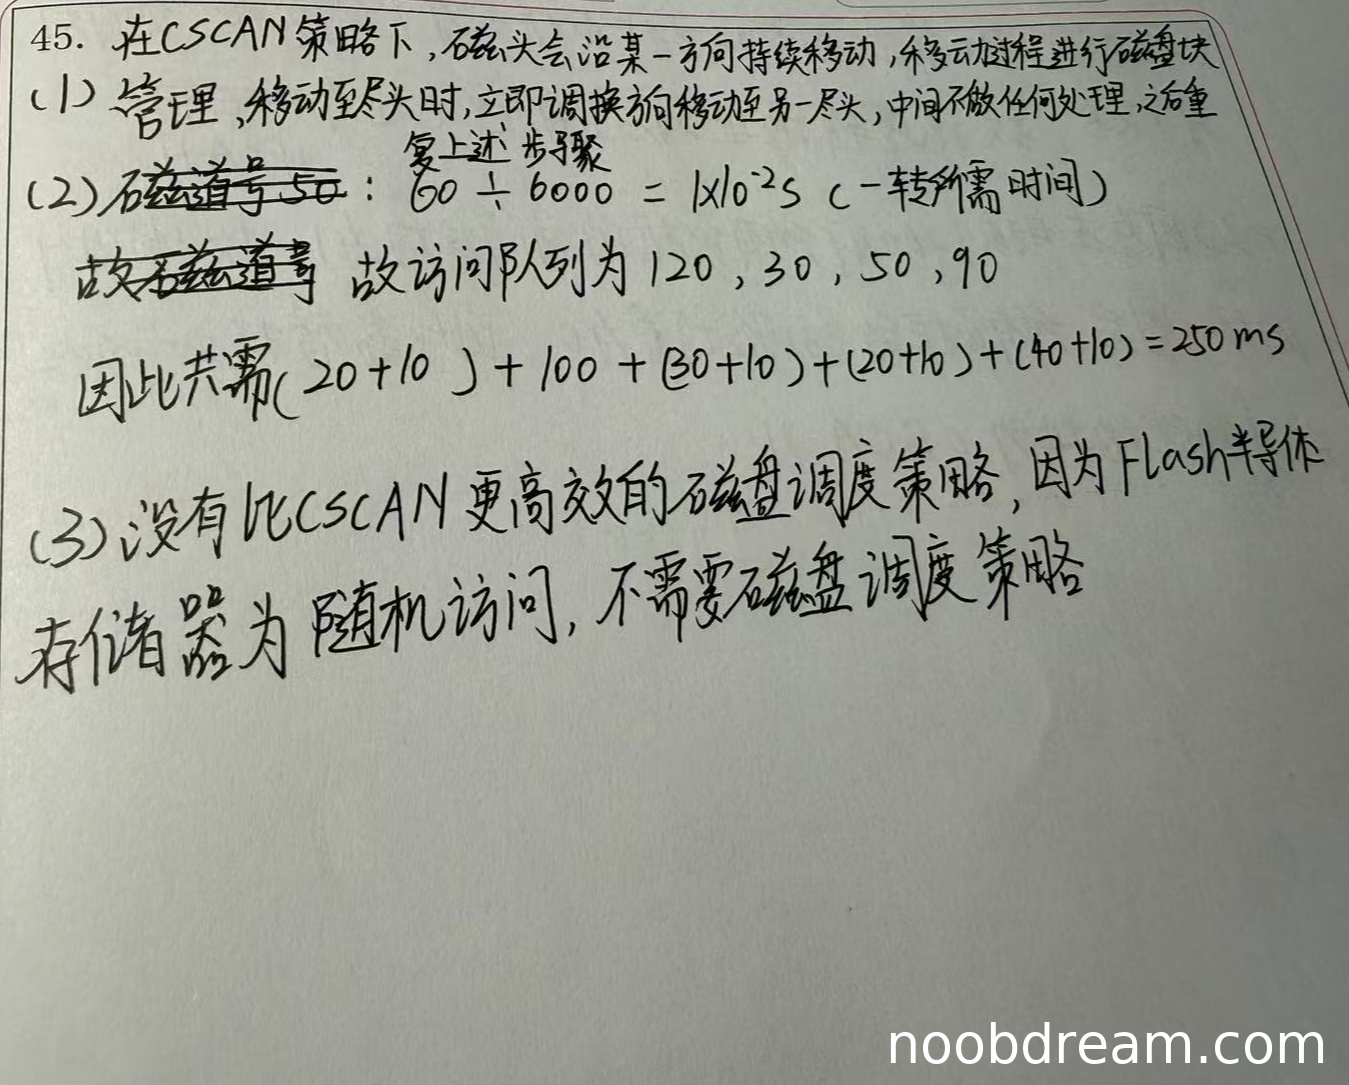 45. 在CSCAN策略下,磁头会沿某一方向持续移动,移动过程进行磁盘块
(1) 管理,移动至尽头时,立即调换方向移动至另一尽头,中间不做任何处理,之后重
复上述步骤
(2) 磁道号50: 60÷6000=1x10⁻²s (一转所需时间)
故磁道号 故访问队列为120,30,50,90
因此共需(20+10)+100+(30+10)+(20+10)+(40+10)=250ms
(3)没有比CSCAN更高效的磁盘调度策略,因为Flash半导体
存储器为随机访问,不需要磁盘调度策略
noobdream.com